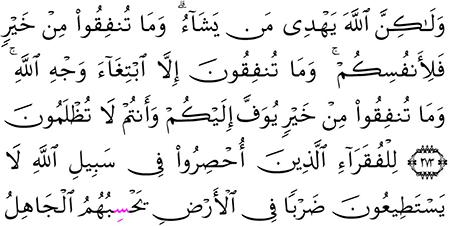 وَلَـٰكِنَّ ٱللَّهَ يَهْدِى مَن يَشَآءُ ۗ وَمَا تُنفِقُوا۟ مِنْ خَيْرٍ
فَلِأَنفُسِكُمْ ۚ وَمَا تُنفِقُونَ إِلَّا ٱبْتِغَآءَ وَجْهِ ٱللَّهِ ۚ
وَمَا تُنفِقُوا۟ مِنْ خَيْرٍ يُوَفَّ إِلَيْكُمْ وَأَنتُمْ لَا تُظْلَمُونَ
﴿٢٧٢﴾ لِلْفُقَرَآءِ ٱلَّذِينَ أُحْصِرُوا۟ فِى سَبِيلِ ٱللَّهِ لَا
يَسْتَطِيعُونَ ضَرْبًا فِى ٱلْأَرْضِ يَحْسِبُهُمُ ٱلْجَاهِلُ